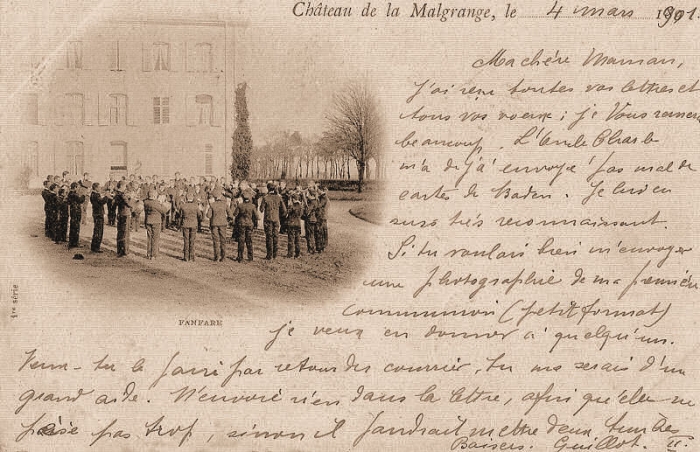 Château de la Malgrange, le 4 mars 1901.
Ma chère Maman,
J'ai reçu toutes vos lettres et
tous vos voeux ; je vous remercie
beaucoup. L'Oncle Charles
m'a déjà envoyé pas mal de
cartes de Baden. Je lui en
suis très reconnaissant.
Si tu voulais bien m'envoyer
une photographie de ma première
communion (petit format)
je veux en donner à quelqu'un.
Veux-tu le faire par retour du courrier, tu me serais d'un
grand aide. N'envoie rien dans la lettre, afin qu'elle ne
pèse pas trop, sinon il faudrait mettre deux timbres
Baisers. Guillot.
FANFARE
1re série